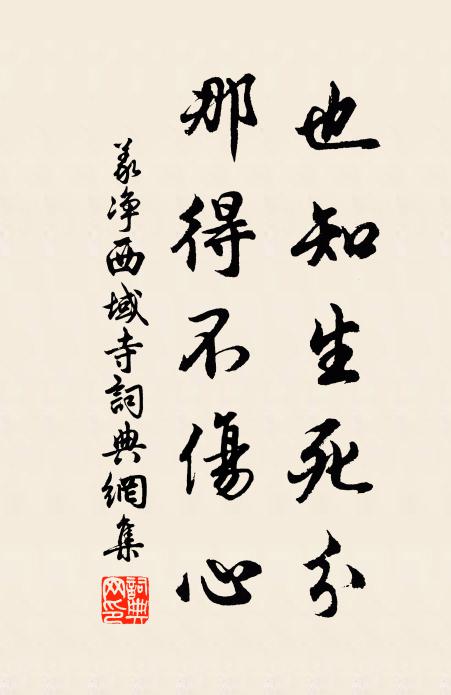 也知生死分
那得不傷心
義净西域寺詞典網集
詞典
网印